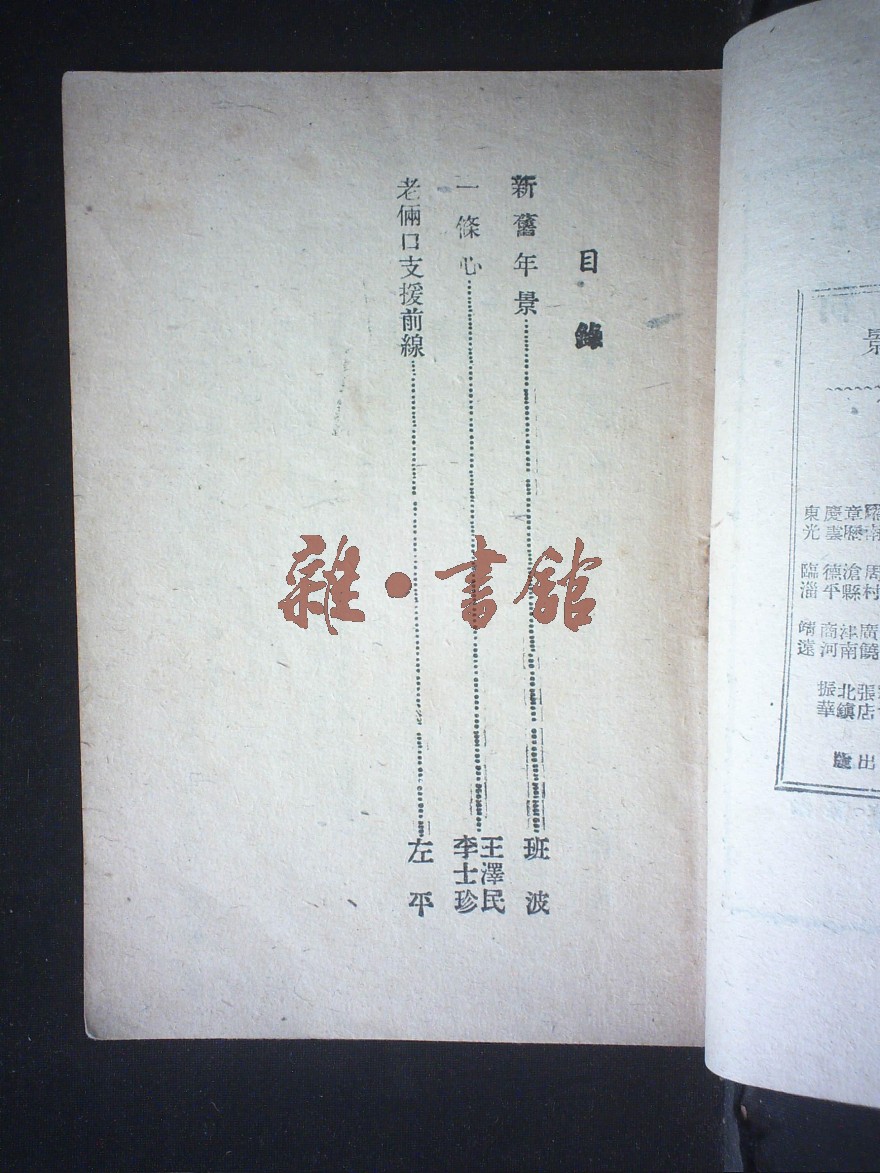 目錄
新舊年景……班波
一條心……王澤民
李士珍
老倆口支援前線……左平
雜·書館
景
周村
廣饒
張店
出
章歷
滄縣
津南
北鎮
版
慶雲
德平
商河
振華
東光
臨淄
靖遠